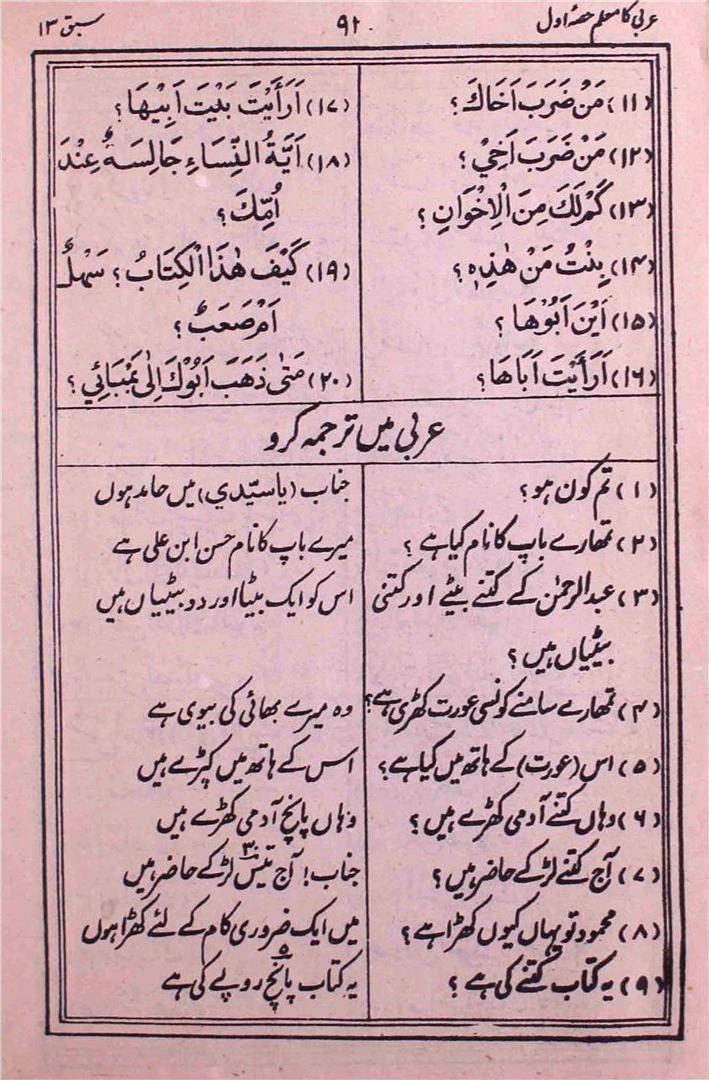 عربی کا معلم حصہ اول ۹۲ سبق ۱۳
(۱۱) مَنْ ضَرَبَ اَخَاكَ؟
(۱۲) مَنْ ضَرَبَ اَخِيْ؟
(۱۳) كَمْ لَكَ مِنَ الْاِخْوَانِ؟
(۱۴) بِنْتُ مَنْ هٰذِهٖ؟
(۱۵) اَيْنَ اَبُوْهَا؟
(۱۶) اَرَأَيْتَ اَبَاهَا؟
(۱۷) اَرَأَيْتَ بَيْتَ اَبِيْهَا؟
(۱۸) اَيَّةُ النِّسَاءِ جَالِسَةٌ عِنْدَ
اُمِّكَ؟
(۱۹) كَيْفَ هٰذَا الْكِتَابُ؟ سَهْلٌ
اَمْ صَعَبٌ؟
(۲۰) مَتٰى ذَهَبَ اَبُوْكَ اِلٰى بَمْبَائِي؟
عربی میں ترجمہ کرو
(۱) تم کون ہو؟ جناب (یا سیّدي) میں حامد ہوں
(۲) تمھارے باپ کا نام کیا ہے؟ میرے باپ کا نام حسن ابن علی ہے
(۳) عبدالرحمٰن کے کتنے بیٹے اور کتنی اس کو ایک بیٹا اور دو بیٹیاں ہیں
بیٹیاں ہیں؟
(۴) تمھارے سامنے کونسی عورت کھڑی ہے؟ وہ میرے بھائی کی بیوی ہے
(۵) اس (عورت) کے ہاتھ میں کیا ہے؟ اس کے ہاتھ میں کپڑے ہیں
(۶) وہاں کتنے آدمی کھڑے ہیں؟ وہاں پانچ آدمی کھڑے ہیں
(۷) آج کتنے لڑکے حاضر ہیں؟ جناب! آج تیس۳۰ لڑکے حاضر ہیں
(۸) محمود تو یہاں کیوں کھڑا ہے؟ میں ایک ضروری کام کے لئے کھڑا ہوں
(۹) یہ کتاب کتنے کی ہے؟ یہ کتاب پانچ۵ روپے کی ہے